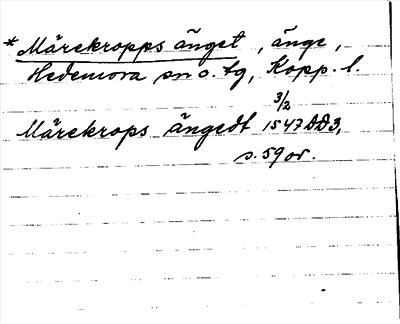 * Märekropps änget, änge,
Hedemora sn o. tg, Kopp. l.
3/2
Märekrops ängedt 1547 DD3,
s. 59 or.